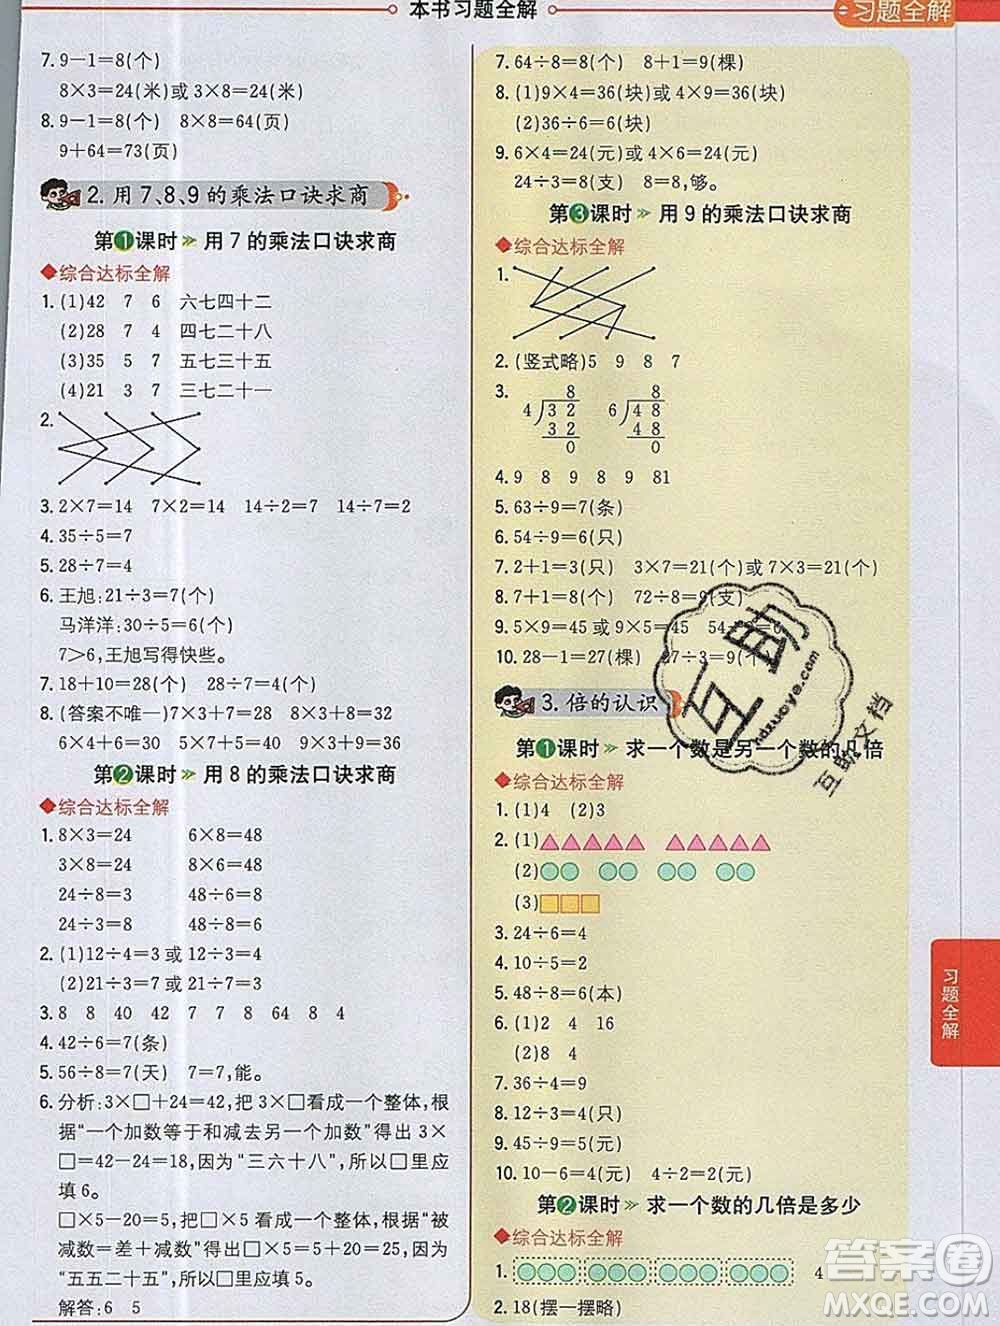 本书习题全解
习题全解
7. 9－1=8(个)
8×3=24(米)或 3×8=24(米)
8. 9－1=8(个) 8×8=64(页)
9+64=73(页)
2. 用 7、8、9 的乘法口诀求商
第1课时 用 7 的乘法口诀求商
综合达标全解
1. (1)42 7 6 六七四十二
(2)28 7 4 四七二十八
(3)35 5 7 五七三十五
(4)21 3 7 三七二十一
2.
3. 2×7=14 7×2=14 14÷2=7 14÷7=2
4. 35÷5=7
5. 28÷7=4
6. 王旭:21÷3=7(个)
马洋洋:30÷5=6(个)
7>6,王旭写得快些。
7. 18+10=28(个) 28÷7=4(个)
8. (答案不唯一)7×3+7=28 8×3+8=32
6×4+6=30 5×7+5=40 7×5+7=42
第2课时 用 8 的乘法口诀求商
综合达标全解
1. 8×3=24 6×8=48
3×8=24 8×6=48
24÷8=3 48÷6=8
24÷3=8 48÷8=6
2. (1)12÷4=3 或 12÷3=4
(2)21÷3=7 或 21÷7=3
3. 8 8 40 42 7 7 8 64 8 4
4. 42÷6=7(条)
5. 56÷8=7(天) 7=7,能。
6. 分析:3×□+24=42,把 3×□看成一个整体,根
据“一个加数等于和减去另一个加数”得出 3×
□=42－24=18,因为“三六十八”,所以□里应
填 6。
□×5－20=5,把□×5 看成一个整体,根据“被
减数=差+减数”得出□×5=5+20=25,因为
“五五二十五”,所以□里应填 5。
解答:6 5
7. 64÷8=8(个) 8+1=9(棵)
8. (1)9×4=36(块)或 4×9=36(块)
(2)36÷6=6(块)
9. 6×4=24(元)或 4×6=24(元)
24÷3=8(支) 8=8,够。
第3课时 用 9 的乘法口诀求商
综合达标全解
1.
2. (竖式略)5 9 8 7
3. 8 8
4 3 2 6 4 8
3 2 4 8
0 0
4. 9 8 9 8 9 81
5. 63÷9=7(条)
6. 54÷9=6(只)
7. 2+1=3(只) 3×7=21(个)或 7×3=21(个)
8. 7+1=8(个) 72÷8=9(支)
9. 5×9=45 或 9×5=45 54÷9=6
10. 28－1=27(棵) 27÷3=9(个)
3. 倍的认识
第1课时 求一个数是另一个数的几倍
综合达标全解
1. (1)4 (2)3
2. (1)
(2)
(3)
3. 24÷6=4
4. 10÷5=2
5. 48÷8=6(本)
6. (1)2 4 16
(2)8 4
7. 36÷4=9
8. 12÷3=4(只)
9. 45÷9=5(元)
10. 10－6=4(元) 4÷2=2(元)
第2课时 求一个数的几倍是多少
综合达标全解
1. 4
2. 18(摆一摆略)
习题全解
互助
hdzuoye.com
互助文档
答案圈
MXQE.COM